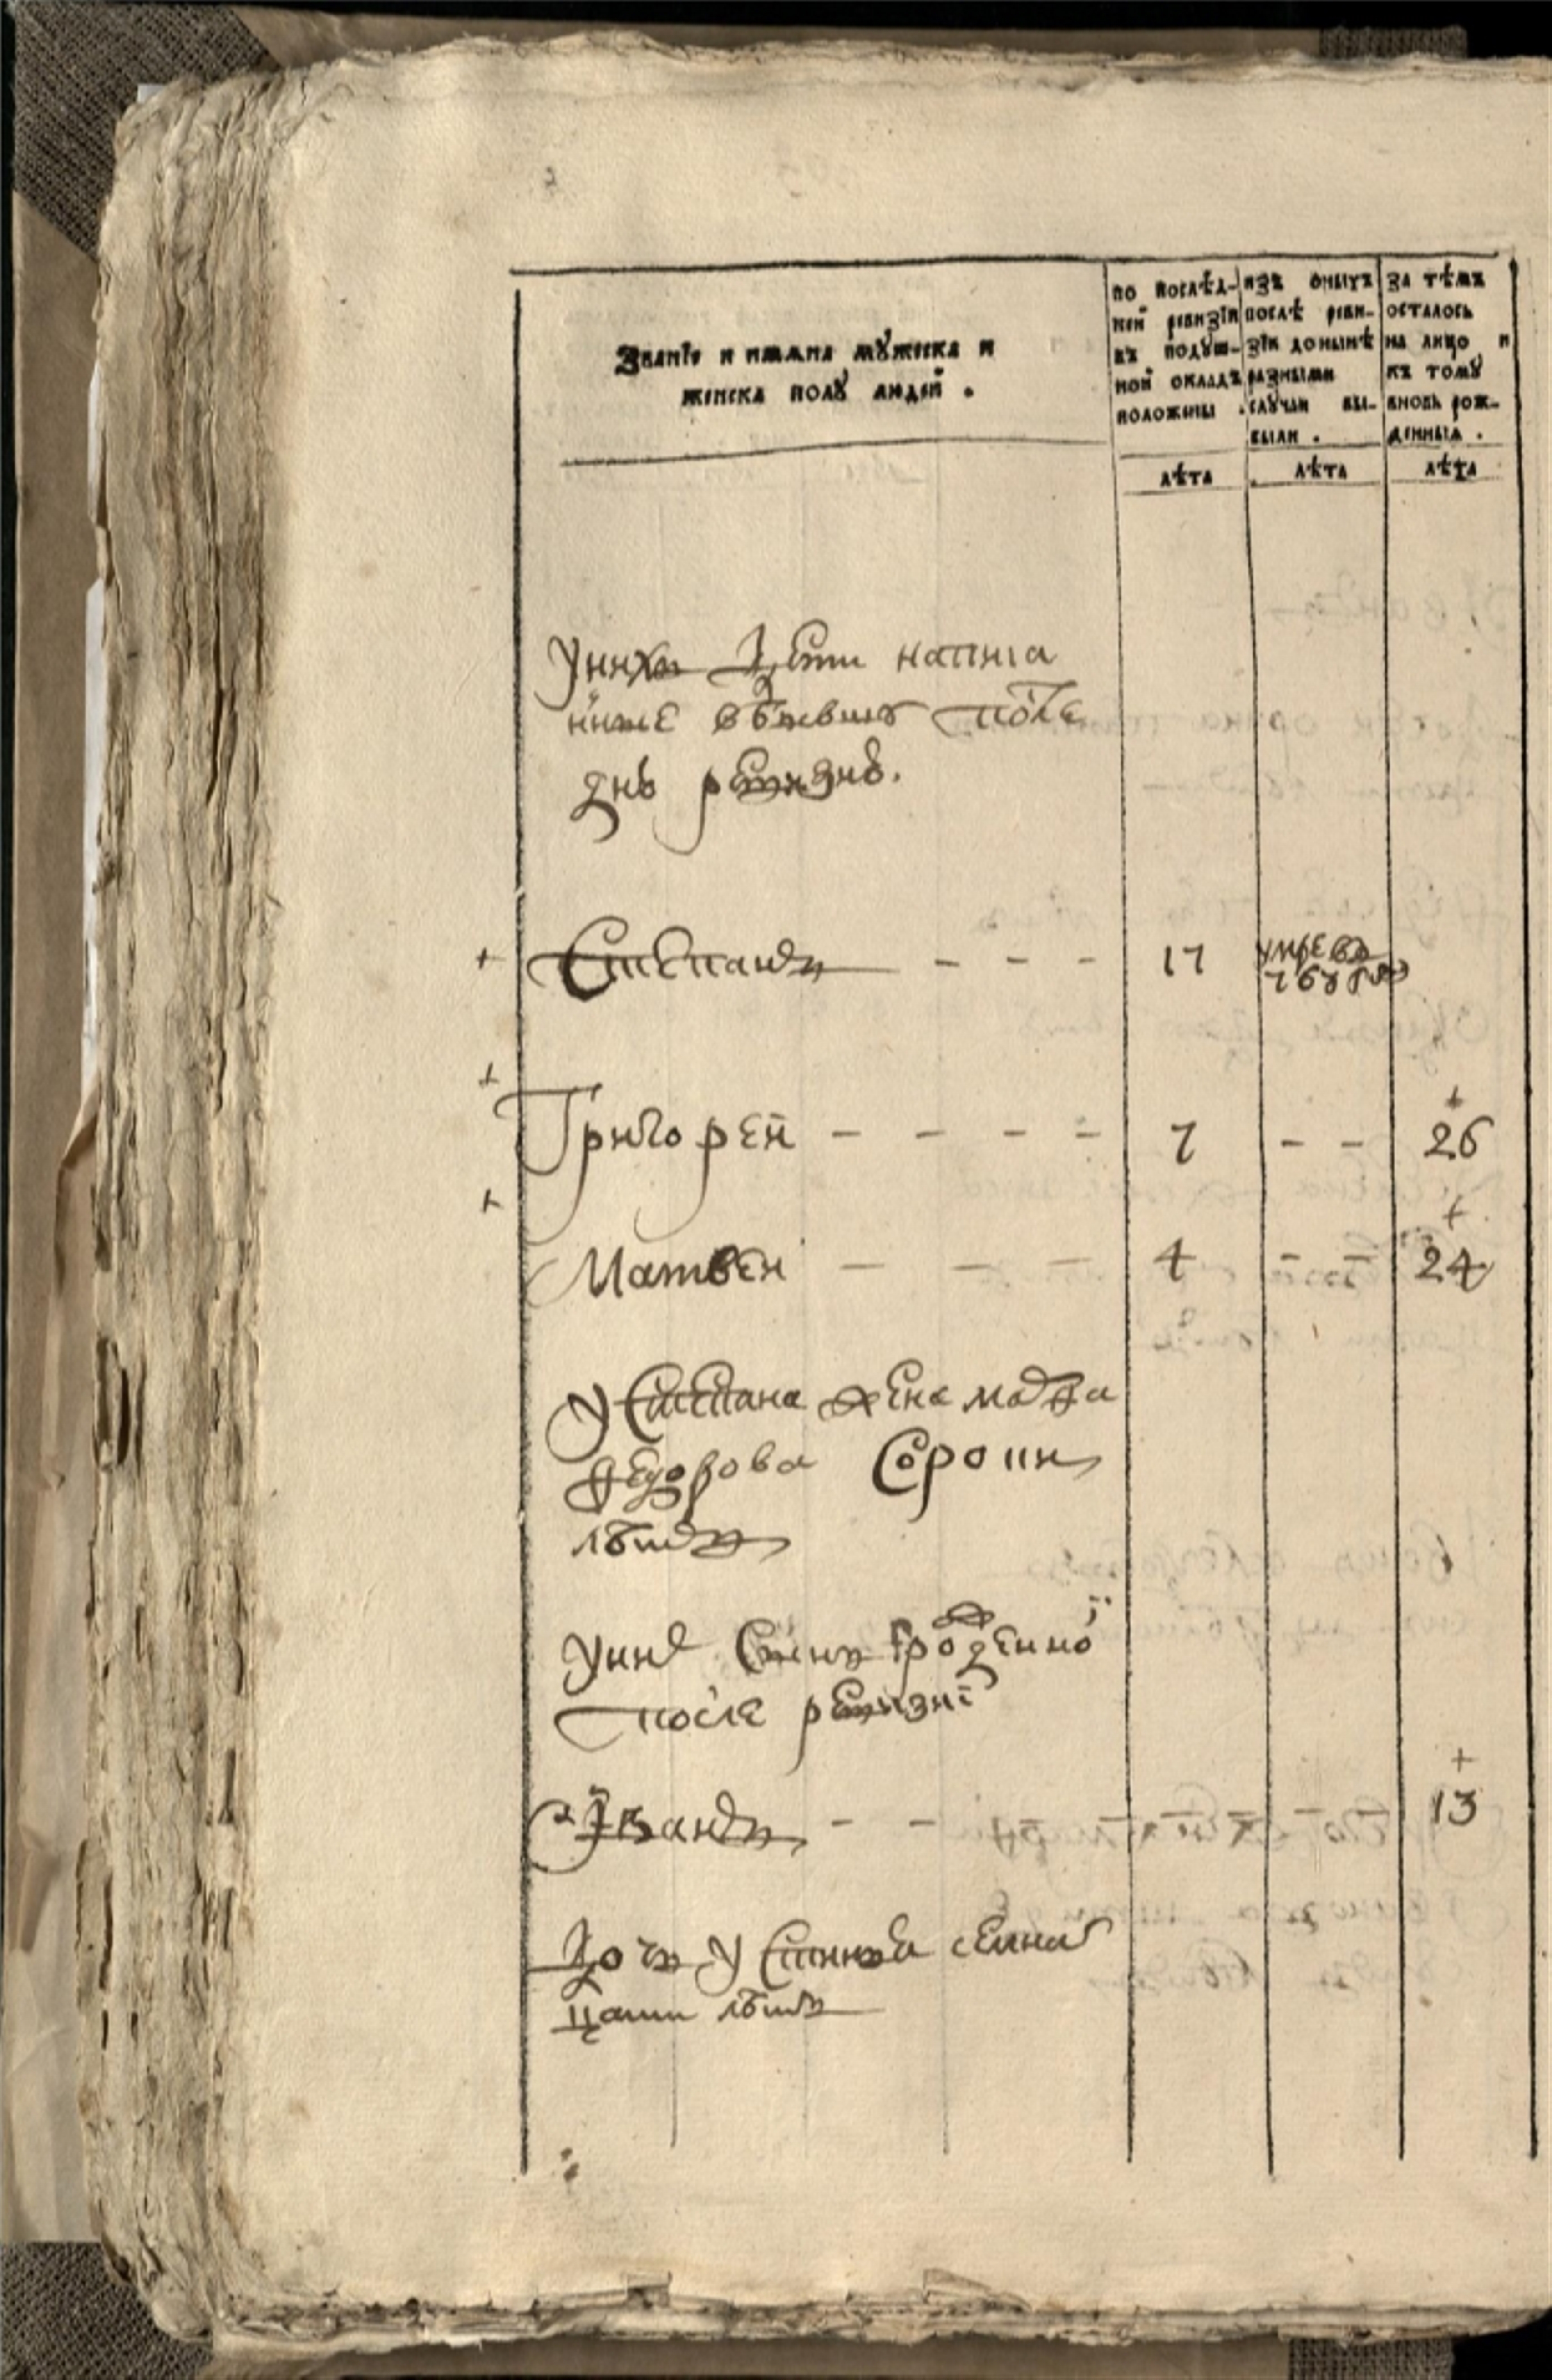 Званїе и имѧна мꙋжеска и
женска полꙋ людей .
по послѣд-
ней ревизїи
въ подꙋш-
ной окладъ
положены .
изъ оныхъ
послѣ реви-
зїи донынѣ
разными
слꙋчаи вы-
были .
за тѣмъ
осталось
на лицо и
къ томꙋ
вновь рож-
денныѧ .
лѣта лѣта лѣта
Унихъ дети написа
ныие въ бывшую после
днѣ ревизиѣ.
Степанъ - - - 17 умре въ
762 году
Григорей - - - - 7 - - 26
Матвеи - - - 4 - - 24
У Степана жена мавра
федорова Сороки
лѣтъ
Унихъ Сынъ рожденно
после ревизиї
Иванъ - - - - - - 13
Дочь Устинья семна
цати лѣтъ